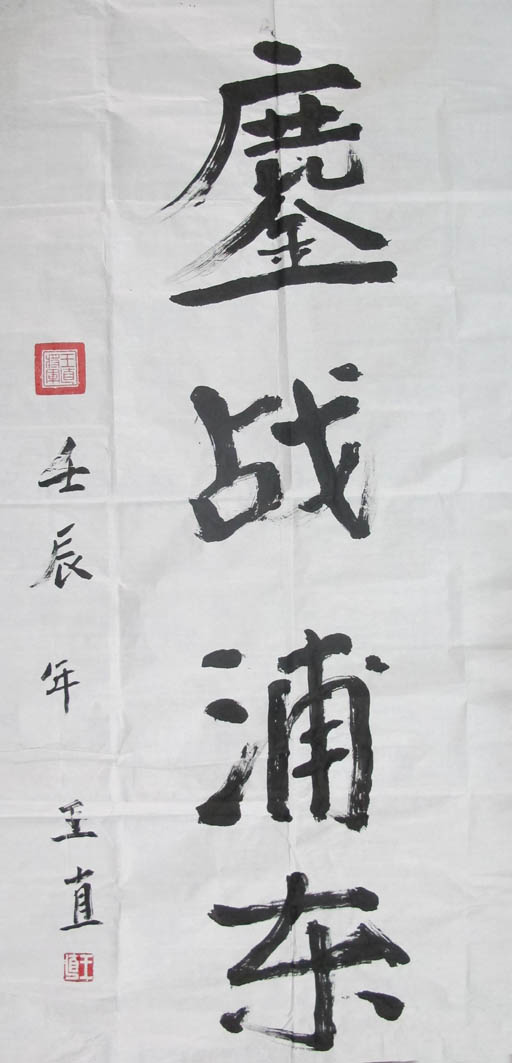 鏖战浦东
壬辰年 王直